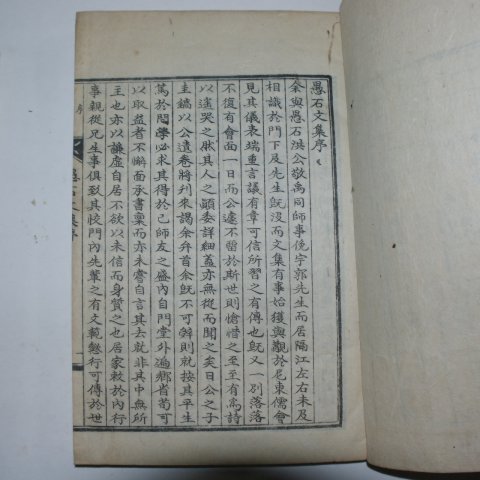 愚石文集序
余與愚石洪公敬禹同師事俛宇郭先生而居隔江左右未及
相識於門下及先生旣沒而文集有事始獲與觀於尼東儒會
見其儀表端重言議有章可信所習之有傳也旣又一別落落
不復有會面一日而公遽不留於斯世則愴惜之至至有爲詩
以遙哭之然其人之顚委詳細蓋亦無從而聞之矣日公之子
圭鎬以公遺卷將刋來謁余弁首余旣不可辭則就按其平生
篤於問學必求其得於己師友之盛內自門堂外遍鄕省苟可
以取益者不懈面承書稟而亦未嘗自言其去就非其中無所
主也亦以謙虛自居不欲以未信而身質之也居家敎於內行
事親從兄生事俱致其 門內先輩之有文範懿行可傳於世
序
愚石文集序
一